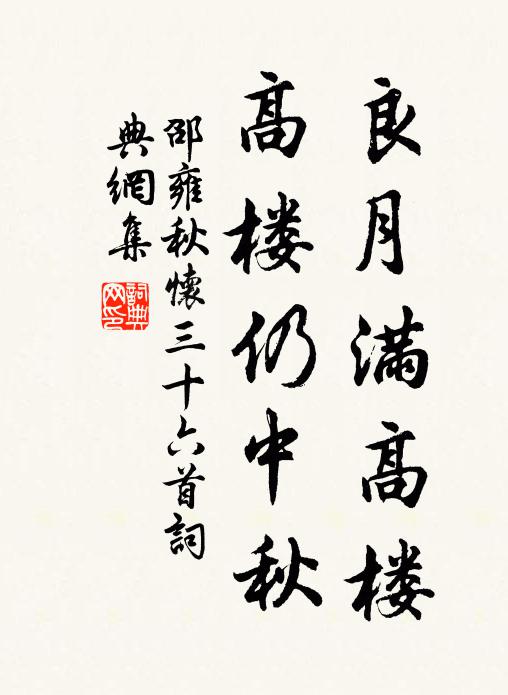 良月滿高楼
高楼仍中秋
邵雍秋懷三十六首詞
典網集
詞典
网印